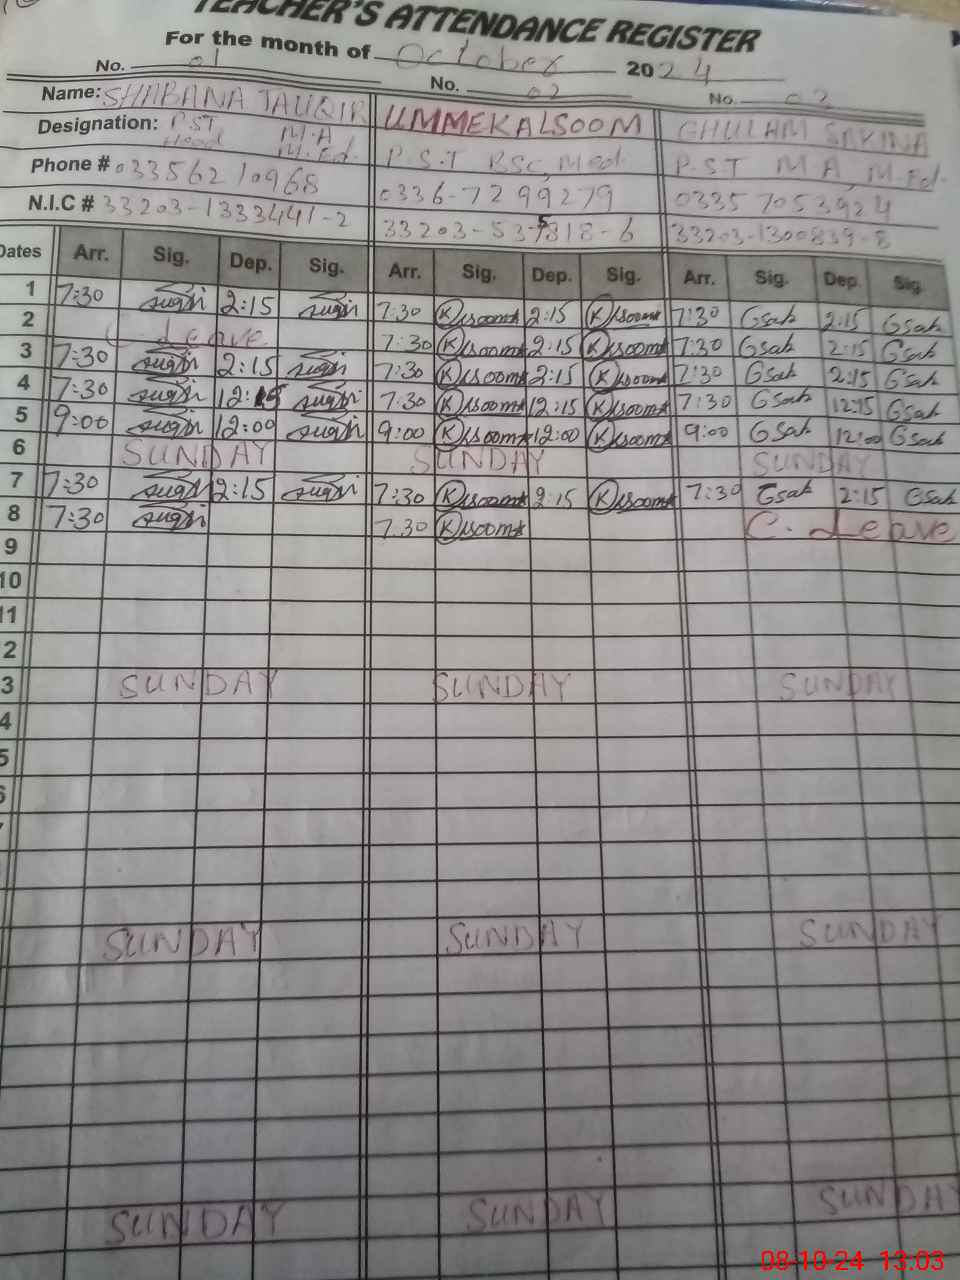 TEACHER'S ATTENDANCE REGISTER
For the month of October 2024
No. 01 No. 02 No. 03
Name: SHABANA TAUQIR UMMEKALSOOM GHULAM SAKINA
Designation: P.ST Head M.A M.Ed. P.S.T BSC, M.ed. P.S.T M A, M.Ed.
Phone # 03356210968 0336-7299279 03357053924
N.I.C # 33203-1333441-2 33203-537818-6 33203-1300839-8
Dates Arr. Sig. Dep. Sig. Arr. Sig. Dep. Sig. Arr. Sig. Dep. Sig.
1 7:30 2:15 7:30 Klsooma 2:15 Klsooma 7:30 Gsak 2:15 Gsak
2 C Leave 7:30 Klsooma 2:15 Klsooma 7:30 Gsak 2:15 Gsak
3 7:30 2:15 7:30 Klsooma 2:15 Klsooma 7:30 Gsak 2:15 Gsak
4 7:30 12:15 7:30 Klsooma 12:15 Klsooma 7:30 Gsak 12:15 Gsak
5 9:00 12:00 9:00 Klsooma 12:00 Klsooma 9:00 Gsak 12:00 Gsak
6 SUNDAY SUNDAY SUNDAY
7 7:30 2:15 7:30 Klsooma 2:15 Klsooma 7:30 Gsak 2:15 Gsak
8 7:30 7.30 Klsooma C. Leave
9
10
11
2
3 SUNDAY SUNDAY SUNDAY
4
5
SUNDAY SUNDAY SUNDAY
SUNDAY SUNDAY SUNDAY
08-10-24 13:03